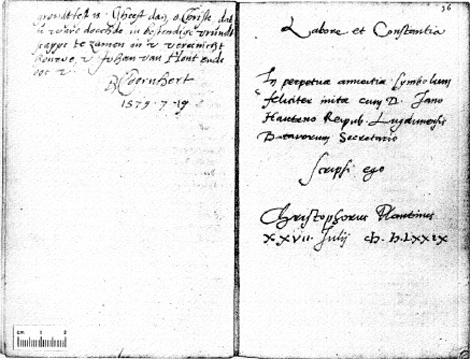 grondtlet is. Gheest dan, o Christe, dat
u ware deachde in bestendige vrundt
scappe te zamen in u vereenicht
houwe, u Johan van Hout ende
oot u
DCoornhert
1579 · 7 · 19
36
Labore et Constantia
In perpetuæ amicitiæ symbolum
feliciter initæ cum D. Jano
Hauteno Reipub. Lugdunensis
Batavorum Secretario
Scripsi ego
Christophorus Plantinus
XXVII. Julij
LXXIX
CM 1 2